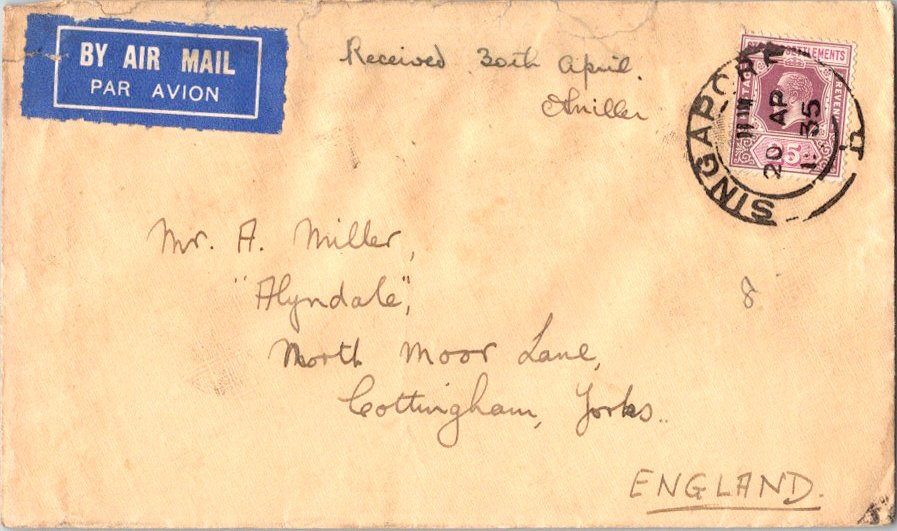 BY AIR MAIL
PAR AVION
Received 30th April.
AMiller
STRAITS SETTLEMENTS
POSTAGE
REVENUE
5
SINGAPORE
20 AP
35
Mr. A. Miller,
"Alyndale",
North Moor Lane,
Cottingham, Yorks.
8
ENGLAND.